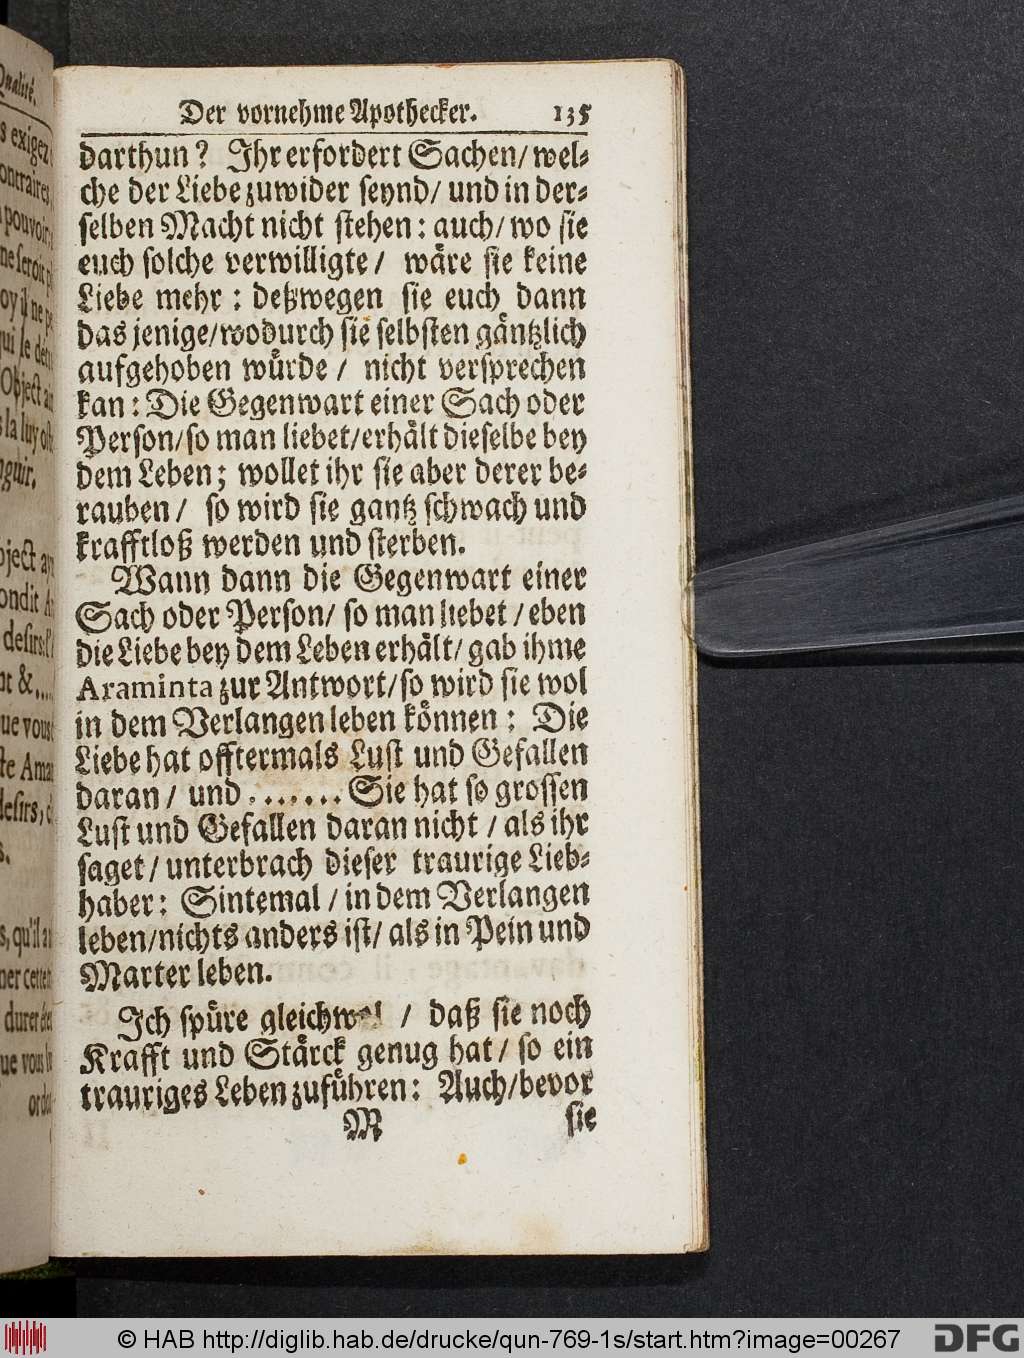 Qualité.
s exigez
ontraires,
pouvoir
ne seroit
oy il ne
qui se
Object
la luy
guir.
bject
ondit
desirs
nt &....
ue vous
te Ama
desirs,
s.
s, qu'il
ner cette
durer
ue vous
Der vornehme Apothecker. 135
darthun? Ihr erfordert Sachen/ wel-
che der Liebe zuwider seynd/ und in der-
selben Macht nicht stehen: auch/ wo sie
euch solche verwilligte/ wäre sie keine
Liebe mehr: deßwegen sie euch dann
das jenige/wodurch sie selbsten gäntzlich
aufgehoben würde/ nicht versprechen
kan: Die Gegenwart einer Sach oder
Person/so man liebet/erhält dieselbe bey
dem Leben; wollet ihr sie aber derer be-
rauben/ so wird sie gantz schwach und
krafftloß werden und sterben.
Wann dann die Gegenwart einer
Sach oder Person/ so man liebet/eben
die Liebe bey dem Leben erhält/ gab ihme
Araminta zur Antwort/so wird sie wol
in dem Verlangen leben können: Die
Liebe hat offtermals Lust und Gefallen
daran/ und.......Sie hat so grossen
Lust und Gefallen daran nicht/als ihr
saget/unterbrach dieser traurige Lieb-
haber: Sintemal/in dem Verlangen
leben/nichts anders ist/ als in Pein und
Marter leben.
Ich spüre gleichwol/ daß sie noch
Krafft und Stärck genug hat/ so ein
trauriges Leben zuführen: Auch/bevor
M sie
© HAB http://diglib.hab.de/drucke/qun-769-1s/start.htm?image=00267
DFG